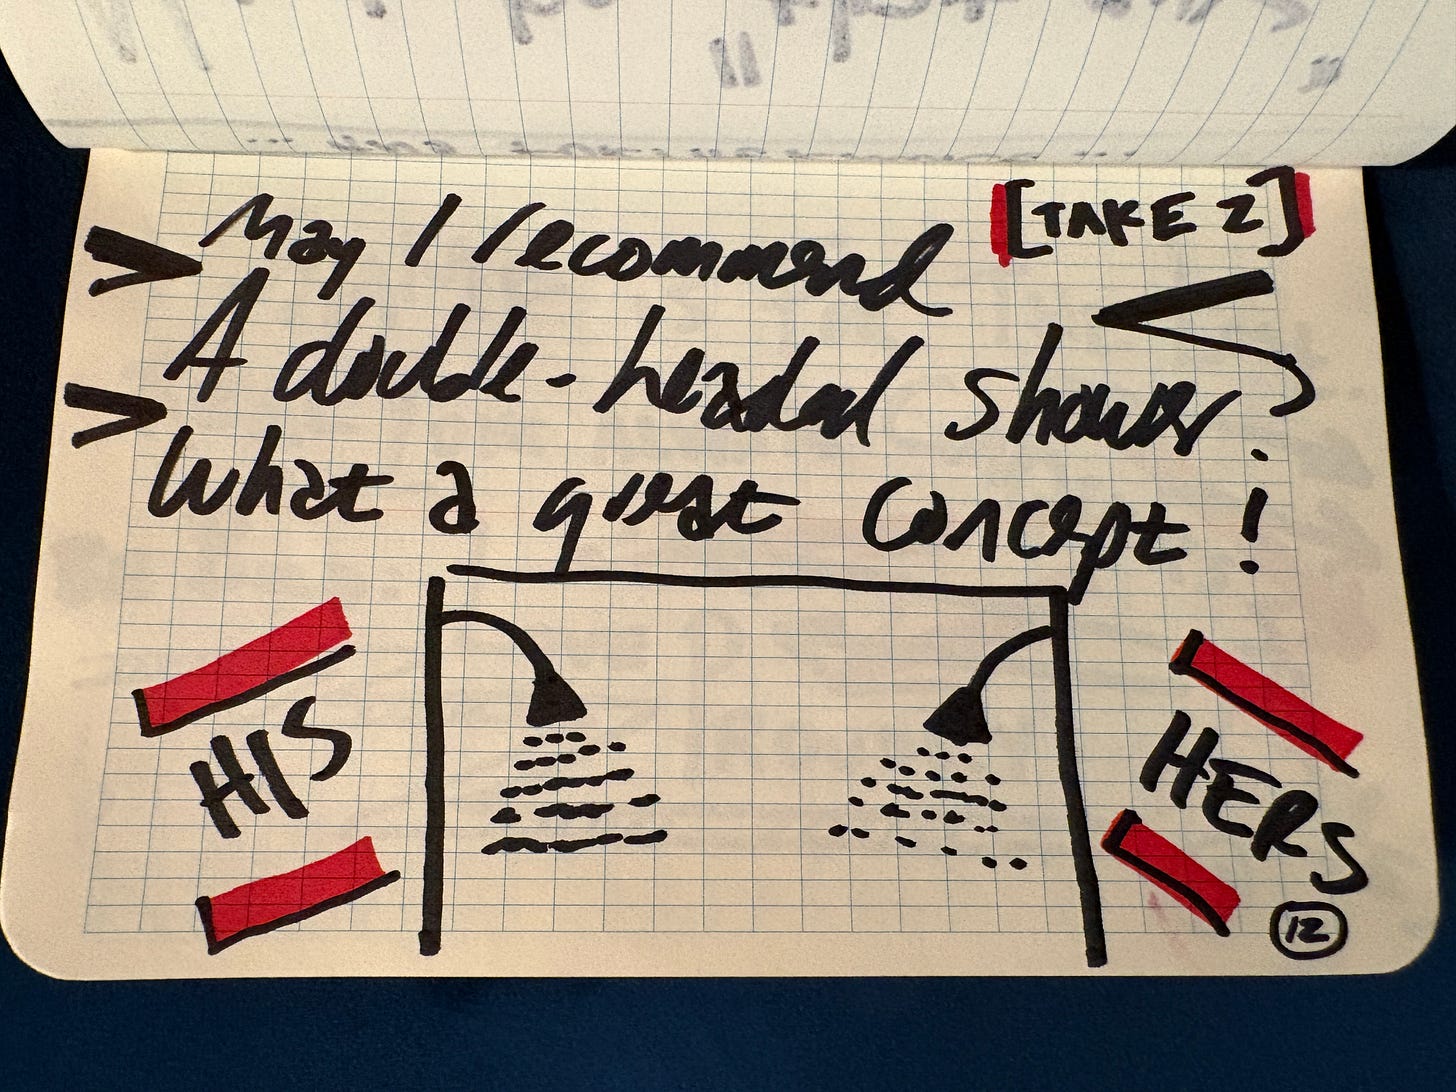 [TAKE 2]
May I recommend
A double-headed shower.
What a great concept!
HIS
HERS
12